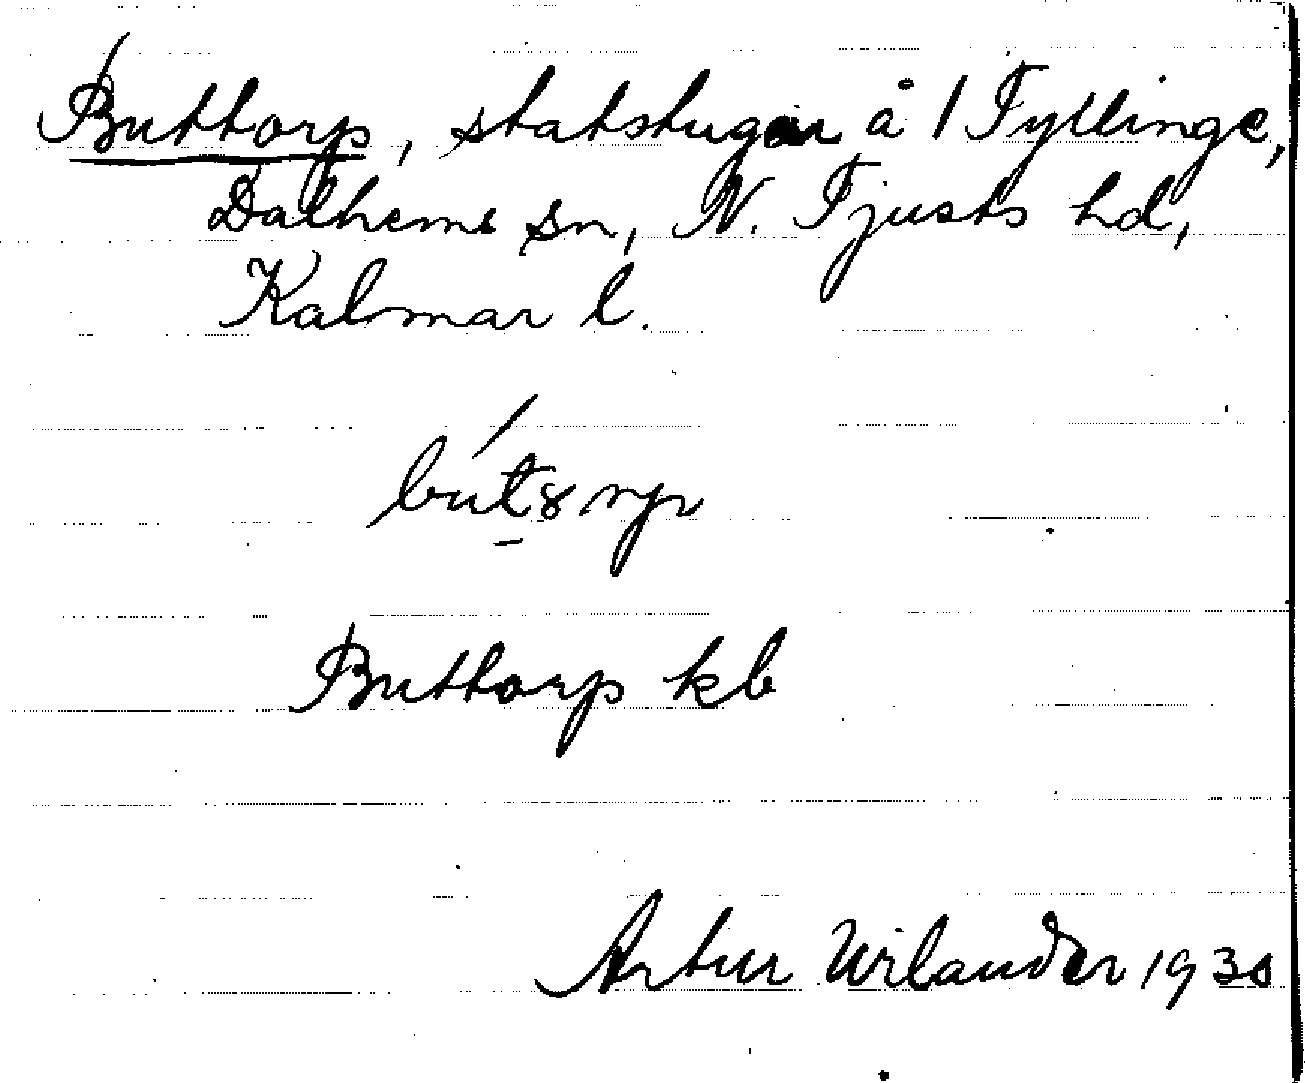 Buttorp, statstugor å 1 Fyllinge,
Dalhems sn, N. Tjusts hd,
Kalmar l.
Buttorp kb
Artur Wilander 1930